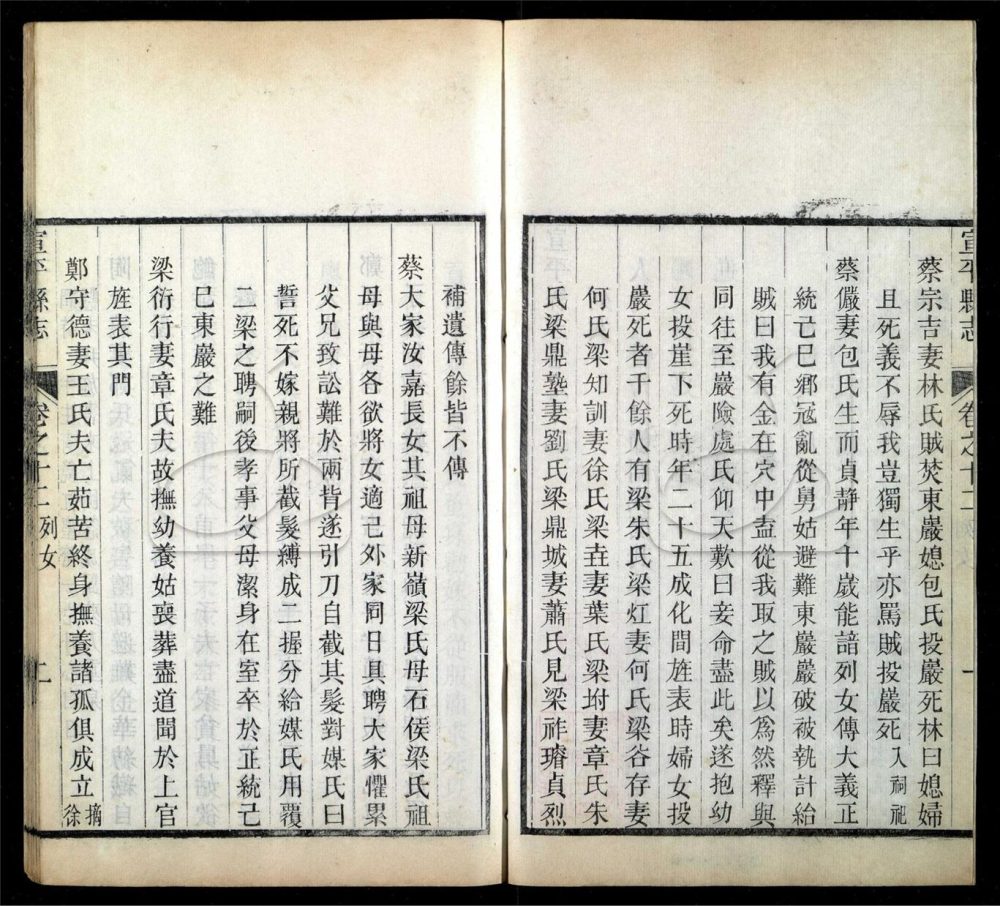 宣平縣志 卷之十二 列女 一
蔡宗吉妻林氏賊焚東巖媳包氏投巖死林曰媳婦
且死義不辱我豈獨生乎亦罵賊投巖死入祠祀
蔡儼妻包氏生而貞靜年十歲能諳列女傳大義正
統己巳鄉冦亂從舅姑避難東巖巖破被執計紿
賊曰我有金在穴中盍從我取之賊以爲然釋與
同往至巖險處氏仰天歎曰妾命盡此矣遂抱幼
女投崖下死時年二十五成化間旌表時婦女投
巖死者千餘人有梁朱氏梁灴妻何氏梁谷存妻
何氏梁知訓妻徐氏梁垚妻葉氏梁坿妻章氏朱
氏梁鼎塾妻劉氏梁鼎城妻蕭氏見梁祚璿貞烈
補遺傳餘皆不傳
蔡大家汝嘉長女其祖母新嶺梁氏母石侯梁氏祖
母與母各欲將女適己外家同日具聘大家懼累
父兄致訟難於兩背遂引刀自截其髮對媒氏曰
誓死不嫁親將所截髮縛成二握分給媒氏用覆
二梁之聘嗣後孝事父母潔身在室卒於正統己
巳東巖之難
梁衍行妻章氏夫故撫幼養姑喪葬盡道聞於上官
旌表其門
鄭守德妻王氏夫亡茹苦終身撫養諸孤俱成立摘徐
宣平縣志 卷之十二 列女 二